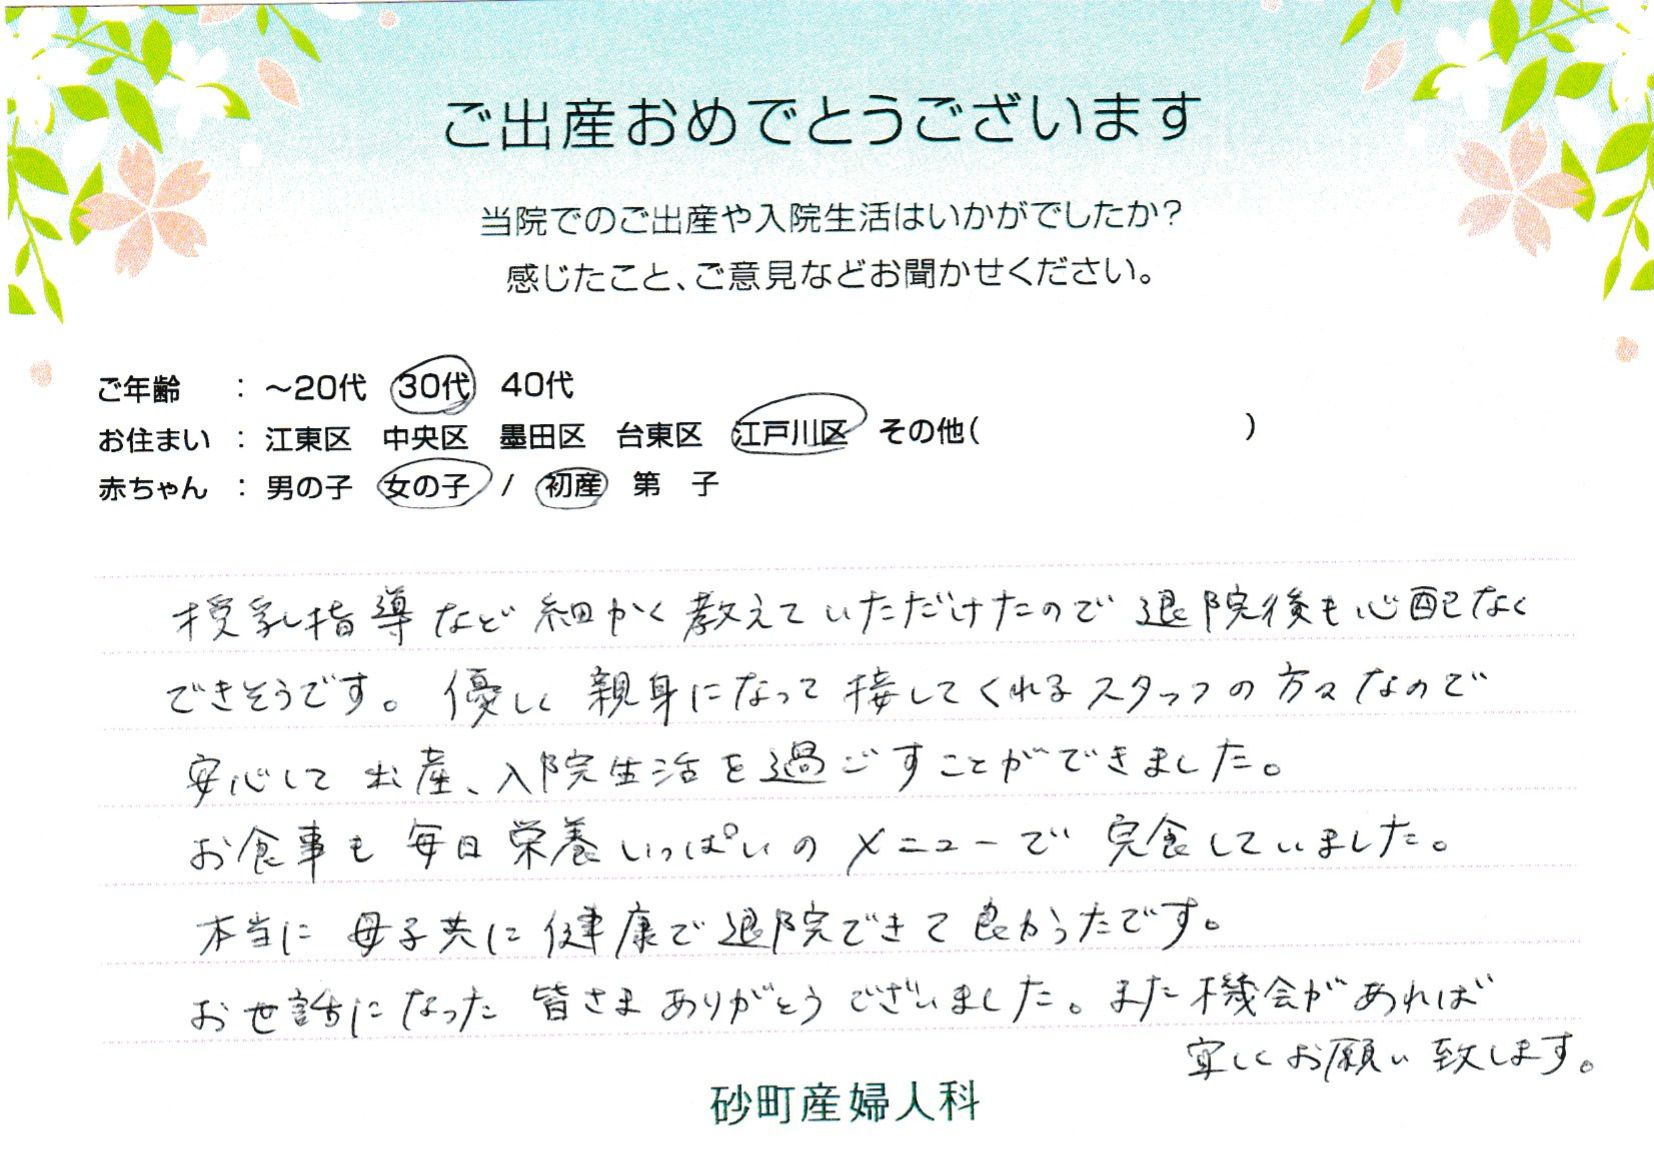 ご出産おめでとうございます
当院でのご出産や入院生活はいかがでしたか?
感じたこと、ご意見などお聞かせください。
ご年齢 : ～20代 30代 40代
お住まい : 江東区 中央区 墨田区 台東区 江戸川区 その他( )
赤ちゃん : 男の子 女の子 / 初産 第 子
授乳指導など細かく教えていただけたので退院後も心配なく
できそうです。優しく親身になって接してくれるスタッフの方々なので
安心して出産、入院生活を過ごすことができました。
お食事も毎日栄養いっぱいのメニューで完食していました。
本当に母子共に健康で退院できて良かったです。
お世話になった皆さまありがとうございました。また機会があれば
宜しくお願い致します。
砂町産婦人科